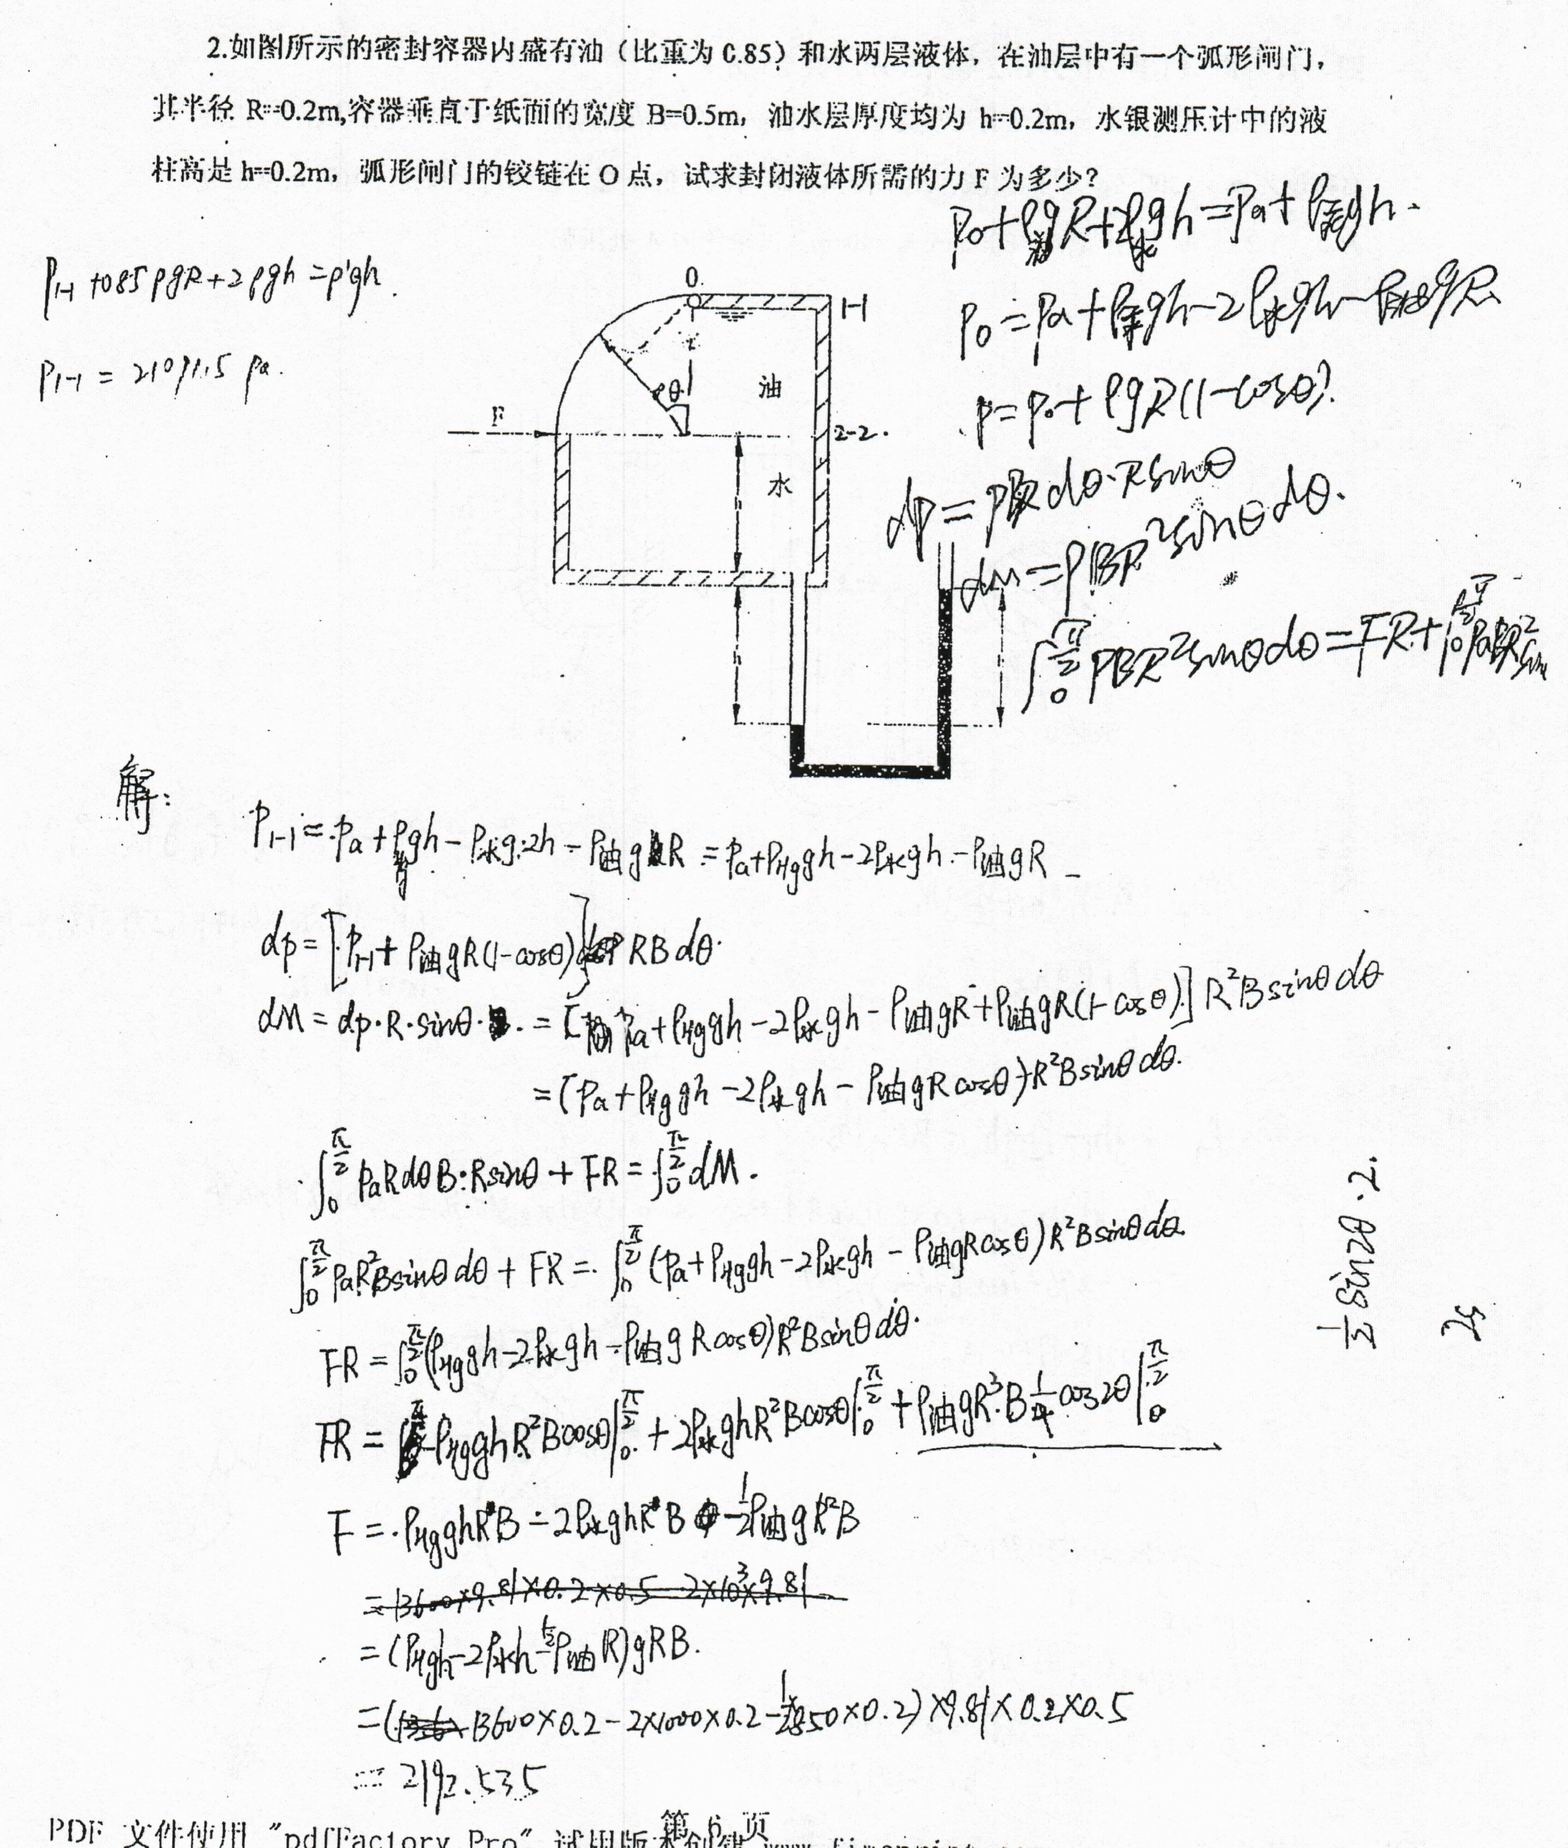 2.如图所示的密封容器内盛有油（比重为 0.85）和水两层液体，在油层中有一个弧形闸门，
其半径 R=0.2m,容器垂直于纸面的宽度 B=0.5m，油水层厚度均为 h=0.2m，水银测压计中的液
柱高是 h=0.2m，弧形闸门的铰链在 O 点，试求封闭液体所需的力 F 为多少？
P₀+ρ油gR+2ρ水gh=Pa+ρ汞gh
P₁₋₁+0.85ρgR+2ρgh=ρ'gh.
P₀=Pa+ρ汞gh-2ρ水gh-ρ油gR
P₁₋₁=21091.5 Pa.
P=P₀+ρgR(1-cosθ).
O
1-1
θ
油
F
2-2.
水
h
h
dp=PBRdθ·Rsinθ
dM=PBR²sinθdθ.
∫₀^(π/2) PBR²sinθdθ=FR+∫₀^(π/2) PaBR²sin
解：
P₁₋₁=Pa+ρHg gh-ρ水g·2h-ρ油gR=Pa+ρHg gh-2ρ水gh-ρ油gR
dp=[P₁₋₁+ρ油gR(1-cosθ)]RBdθ.
dM=dp·R·sinθ=[Pa+ρHg gh-2ρ水gh-ρ油gR+ρ油gR(1-cosθ)]R²Bsinθdθ
=(Pa+ρHg gh-2ρ水gh-ρ油gRcosθ)R²Bsinθdθ.
∫₀^(π/2) PaRdθB·Rsinθ+FR=∫₀^(π/2) dM.
∫₀^(π/2) PaR²Bsinθdθ+FR=∫₀^(π/2) (Pa+ρHg gh-2ρ水gh-ρ油gRcosθ)R²Bsinθdθ
FR=∫₀^(π/2) (ρHg gh-2ρ水gh-ρ油gRcosθ)R²Bsinθdθ.
FR=-ρHg ghR²Bcosθ|₀^(π/2)+2ρ水ghR²Bcosθ|₀^(π/2)+ρ油gR³B¼cos2θ|₀^(π/2)
½sin2θ·2.
F=ρHg ghRB-2ρ水ghRB-½ρ油gR²B
=13600×9.81×0.2×0.5 2×10³×9.81
=(ρHg h-2ρ水h-½ρ油R)gRB.
=(13600×0.2-2×1000×0.2-½×850×0.2)×9.81×0.2×0.5
=2192.535
第 6 页
PDF 文件使用 "pdfFactory Pro" 试用版本创建